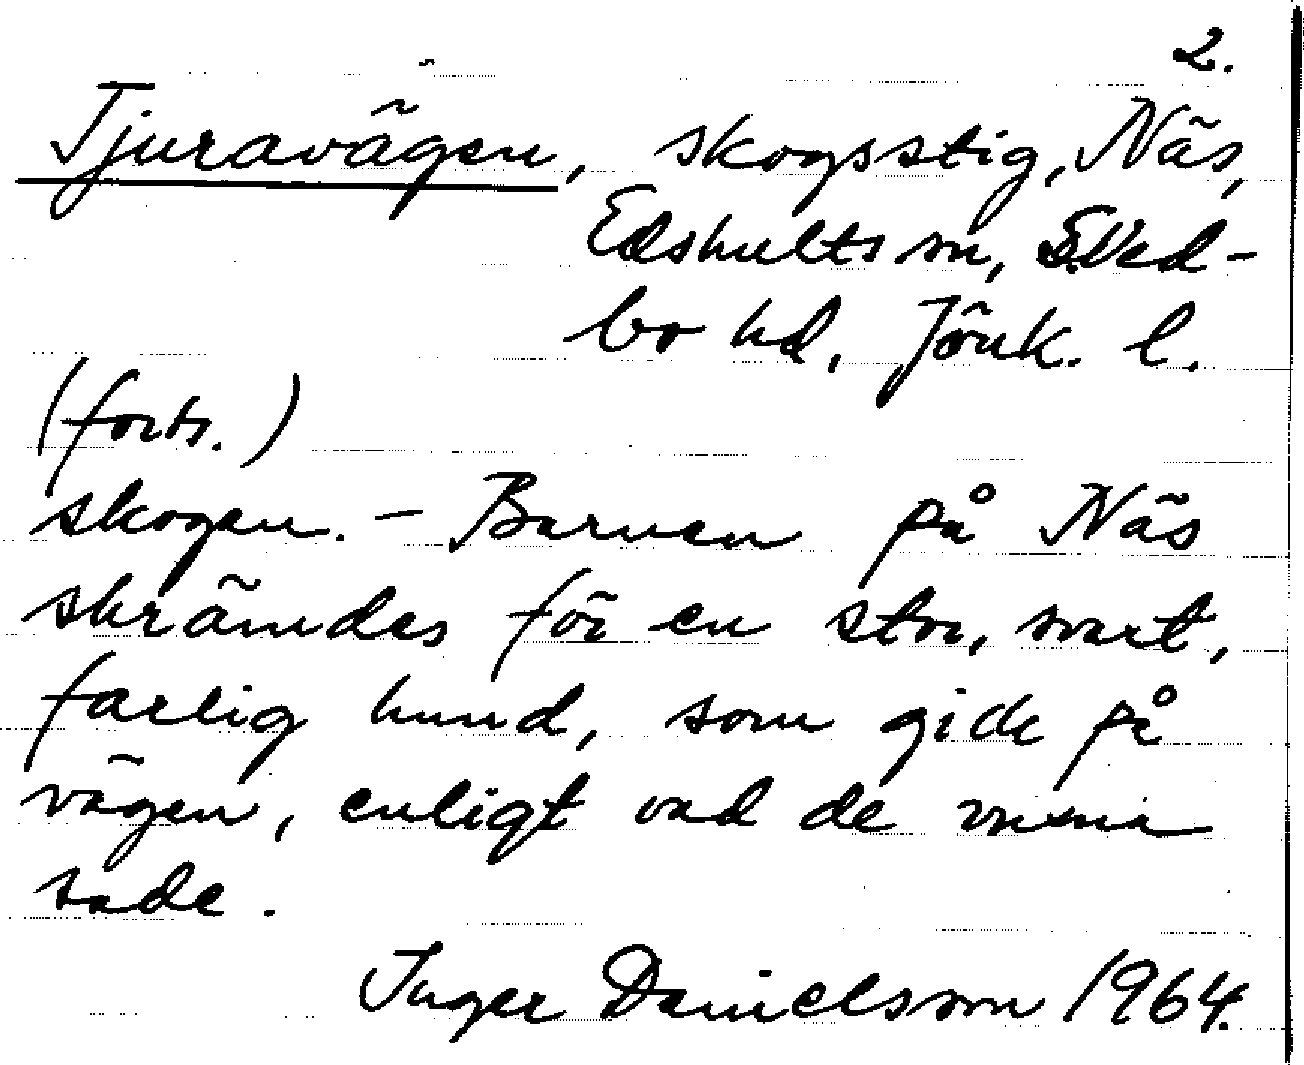 2.
Tjuravägen, skogsstig, Näs,
Edshults sn, S.Ved-
bo hd, Jönk. l.
(forts.)
skogen. - Barnen på Näs
skrämdes för en stor, svart,
farlig hund, som gick på
vägen, enligt vad de vuxna
sade.
Inger Danielsson 1964.